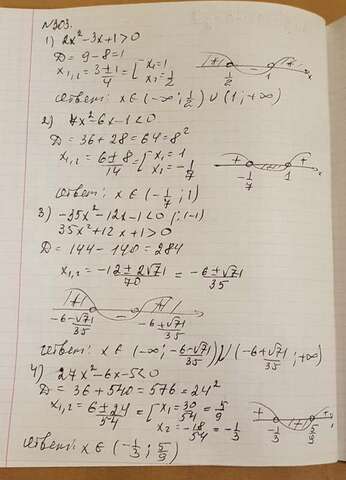 №303.
1) 2x²-3x+1>0
D = 9-8=1
x₁,₂ = 3±1/4 = [x₁=1 x₂=1/2
1/2 1 x
Ответ: x∈(-∞;1/2)∪(1;+∞)
2) 7x²-6x-1<0
D = 36+28=64=8²
x₁,₂ = 6±8/14 = [x₁=1 x₂=-1/7
+ - + -1/7 1 x
Ответ: x∈(-1/7;1)
3) -35x²-12x-1<0 |:(-1)
35x²+12x+1>0
D = 144-140=284
x₁,₂ = -12±2√71/70 = -6±√71/35
+ - +
-6-√71/35 -6+√71/35
Ответ: x∈(-∞;-6-√71/35)∪(-6+√71/35;+∞)
4) 27x²-6x-5<0
D = 36+540=576=24²
x₁,₂ = 6±24/54 = [x₁=30/54=5/9
x₂=-18/54=-1/3
+ - + -1/3 5/9 x
Ответ: x∈(-1/3;5/9)